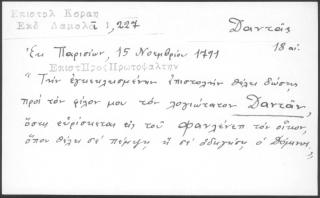 Επιστολ Κοραη
Εκδ Δαμαλᾶ 1,227
Δαντᾶς
18 αἰ.
Ἐκ Παρισίων, 15 Νοεμβρίου 1791
ΕπιστΠροςΠρωτοψαλτην
"Τὴν ἐγκεκλεισμένην ἐπιστολὴν θέλεις δώσεις
πρὸς τὸν φίλον μου τὸν λογιώτατον Δαντᾶν,
ὅστις εὑρίσκεται εἰς τοῦ Φανλένεπ τὸν οἶκον,
ὅπου θέλει σὲ πέμψη ἢ σὲ ὁδηγήσῃ ὁ Δόμινος